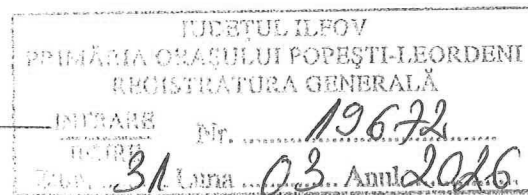 JUDEȚUL ILFOV
PRIMĂRIA ORAȘULUI POPEȘTI-LEORDENI
REGISTRATURA GENERALĂ
INTRARE Nr. 19672
IEȘIRE
Ziua 31 Luna 03 Anul 2026